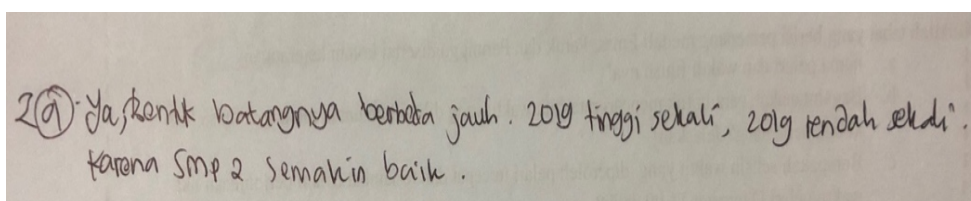 2(a). Ya, bentk batangnya berbeda jauh. 2019 tinggi sekali, 2019 rendah sekali.
Karena Smp 2 semakin baik.